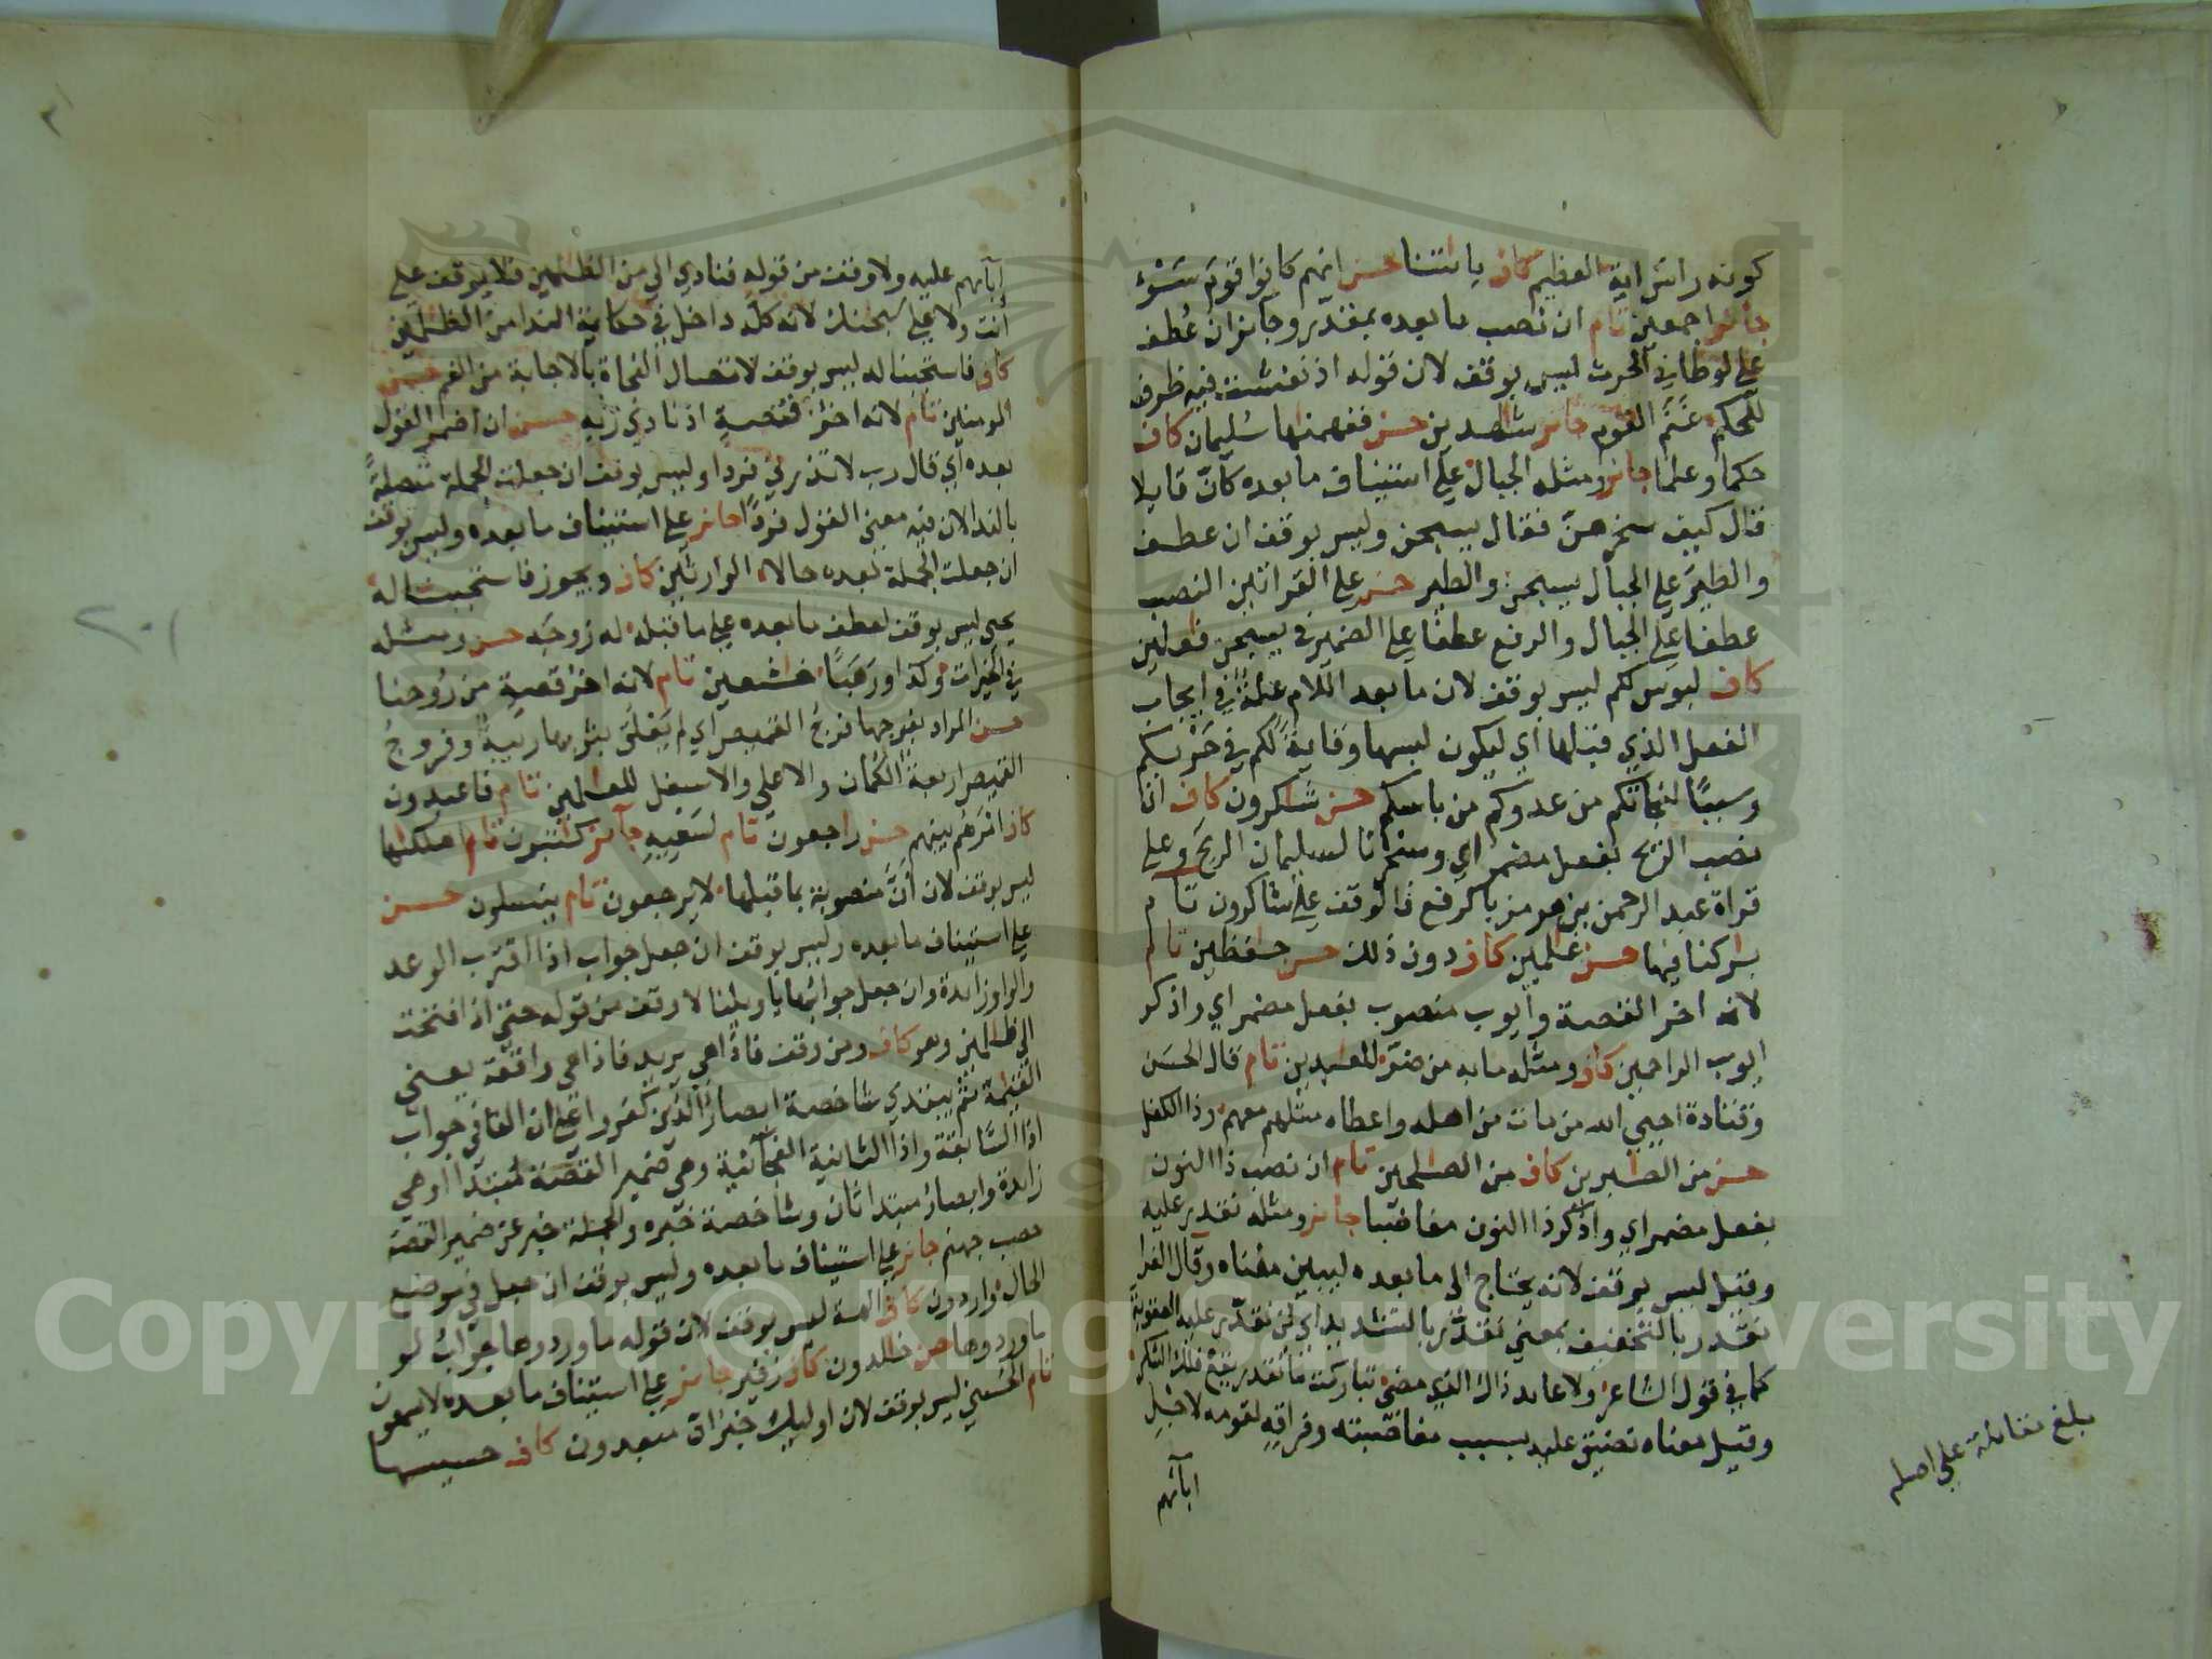 كونه راس اية العظيم كاف باياتنا حسن انهم كانوا قوم سَوْءٍ
جائز اجمعين تام ان نصب ما بعده بمقدّر وجائز ان عُطف
على لوطا في الحرث ليس بوقف لان قوله اذ نفشت فيه ظرف
للحكم غَنَمُ القوم جائز شاهدين حسن ففهمناها سُليمان كاف
حكما وعلما جائز ومثله الجبال على استيناف ما بعده كانّ قايلا
قال كيف سخرهنّ فقال يسبحن وليس بوقف ان عطف
والطيرَ على الجبال يسبحن والطير حسن على القراتين النصب
عطفا على الجبال والرفع عطفًا على الضمير في يسبحن فعلين
كاف لبوس لكم ليس بوقف لان ما بعد اللام علة في ايجاب
الفعل الذي قبلها اي ليكون لبسها وقايةً لكم في حَرْبكم
وسببًا لنجاتكم من عدوكم من باسكم حسن شاكرون كاف ان
نصب الريح بفعل مضمر اي وسخرنا لسليمان الريحَ وعلى
قراة عبد الرحمن بن هرمز بالرفع فالوقف على شاكرون تام
باركنا فيها حسن علمين كاف دون ذلك حسن حفظين تام
لانه اخر القصة وأيوب منصوب بفعل مضمر اي واذكر
ايوب الراحمين كاف ومثله ما به من ضرّ للعبدين تام قال الحسن
وقتادة احيي الله من مات من اهله واعطاه مثلهم معهم وذا الكفل
حسن من الصبرين كاف من الصلحين تام ان نصب ذا النون
بفعل مضمر اي واذكر ذا النون مغاضبا جائز ومثله نقدر عليه
وقيل ليس بوقف لانه يحتاج الى ما بعده ليبين معناه وقال الفرا
نقدر بالتخفيف بمعنى نقدّر بالتشديد اي لن نقدّر عليه العقوبة
كما في قول الشاعر ولا عايد ذاك الذي مضى تباركت ما تقدر يقع فلك الشكر
وقيل معناه نضيق عليه بسبب مغاضبته وفراقه لقومه لاجل
ابآئهم
بلغ مقابلة على اصله
ابآئهم عليه ولا وقف من قوله فنادى الى من الظلمين فلا يوقف على
أنت ولا على سبحنك لانه كله داخل في حكاية الندا من الظلمين
كاف فاستجبنا له ليس بوقف لاتصال النجاة بالاجابة من الغم حسن
المومنين تام لانه اخر قصةٍ اذ نادى ربه حسن ان اضمر القول
بعده أي قال رب لا تذرني فردا وليس بوقف ان جعلت الجملة متصلةً
بالندا لان فيه معنى القول فردًا جائز على استيناف ما بعده وليس بوقف
ان جعلت الجملة بعده حالا الوارثين كاف ويجوز فاستجبنا له
يحيى ليس بوقف لعطف ما بعده على ما قبله له زوجَه حسن ومثله
في الخيرات وكذا ورَهَبًا خشعين تام لانه اخر قصةٍ من رُوحنا
حسن المراد بفرجها فرجُ القميص اي لم يَعْلَق بثوبها ريبةٌ وفروجُ
القميص اربعةٌ الكُمان والاعلى والاسفل للعلمين تام فاعبدون
كاف امرَهم بينهم حسن راجعون تام لسَعيِهِ جائز كتبون تام اهلكنها
ليس بوقف لان أنّ منصوبة بما قبلها لا يرجعون تام ينسلون حسن
على استيناف ما بعده وليس بوقف ان جعل جواب اذا اقترب الوعد
والواو زايدة وان جعل جوابها يا ويلنا لا وقف من قوله حتى اذا فتحت
الى ظلمين وهو كاف ومن وقف فاذا هي يريد فاذا هي واقفة يعني
القيمة ثم يبتدي شاخصة ابصارُ الذين كفروا على ان الفا في جواب
اذا السَّابقة واذا الثانية الفجائية وهي ضمير القصّة مُبتدأ او هي
زايدة وابصارُ مبتدا ثان وشاخصة خبره والجملة خبر عن ضمير القصة
حصب جهنم جائز على استيناف ما بعده وليس بوقف ان جعل في موضع
الحال واردون كاف الهة ليس بوقف لان قوله ما وردوها جوابُ لو
ما وردوها حسن خلدون كاف زفير جائز على استيناف ما بعده لا يسمعون
تام الحُسنى ليس بوقف لان اوليك خبرُ انّ مبعدون كاف حسيسها